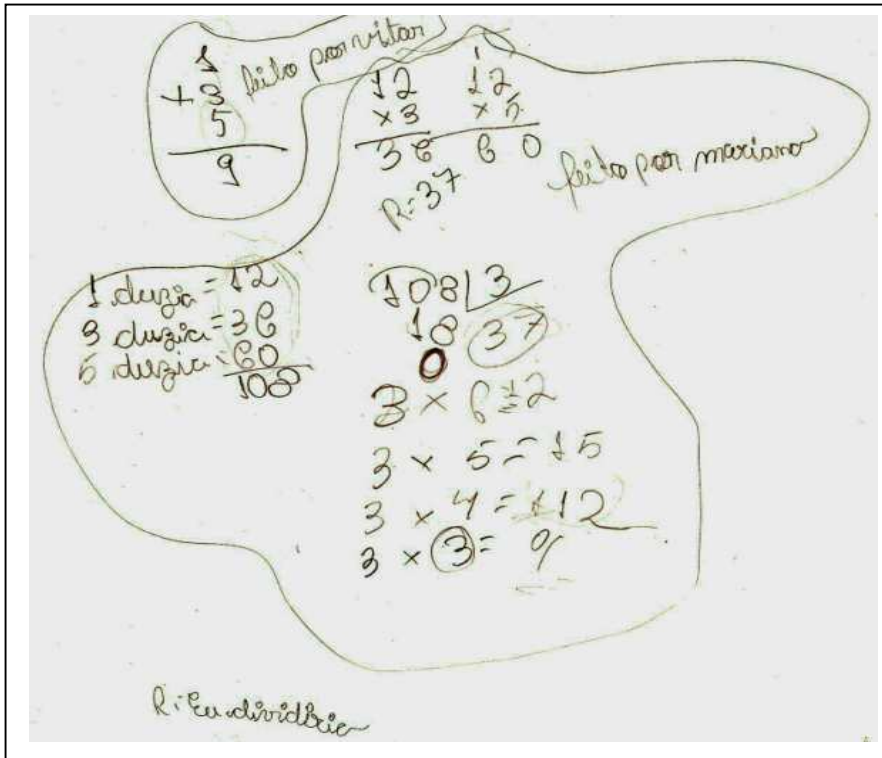 1
+ 3 feito por vitor
5
9
1
12 12
x3 x5
36 60
feito por mariano
R=37
1 duzia = 12
3 duzia = 36
5 duzia = 60
108
108 3
18 37
0
3 x 6 = 2
3 x 5 = 15
3 x 4 = 12
3 x 3 = 9
R: Eu dividiria